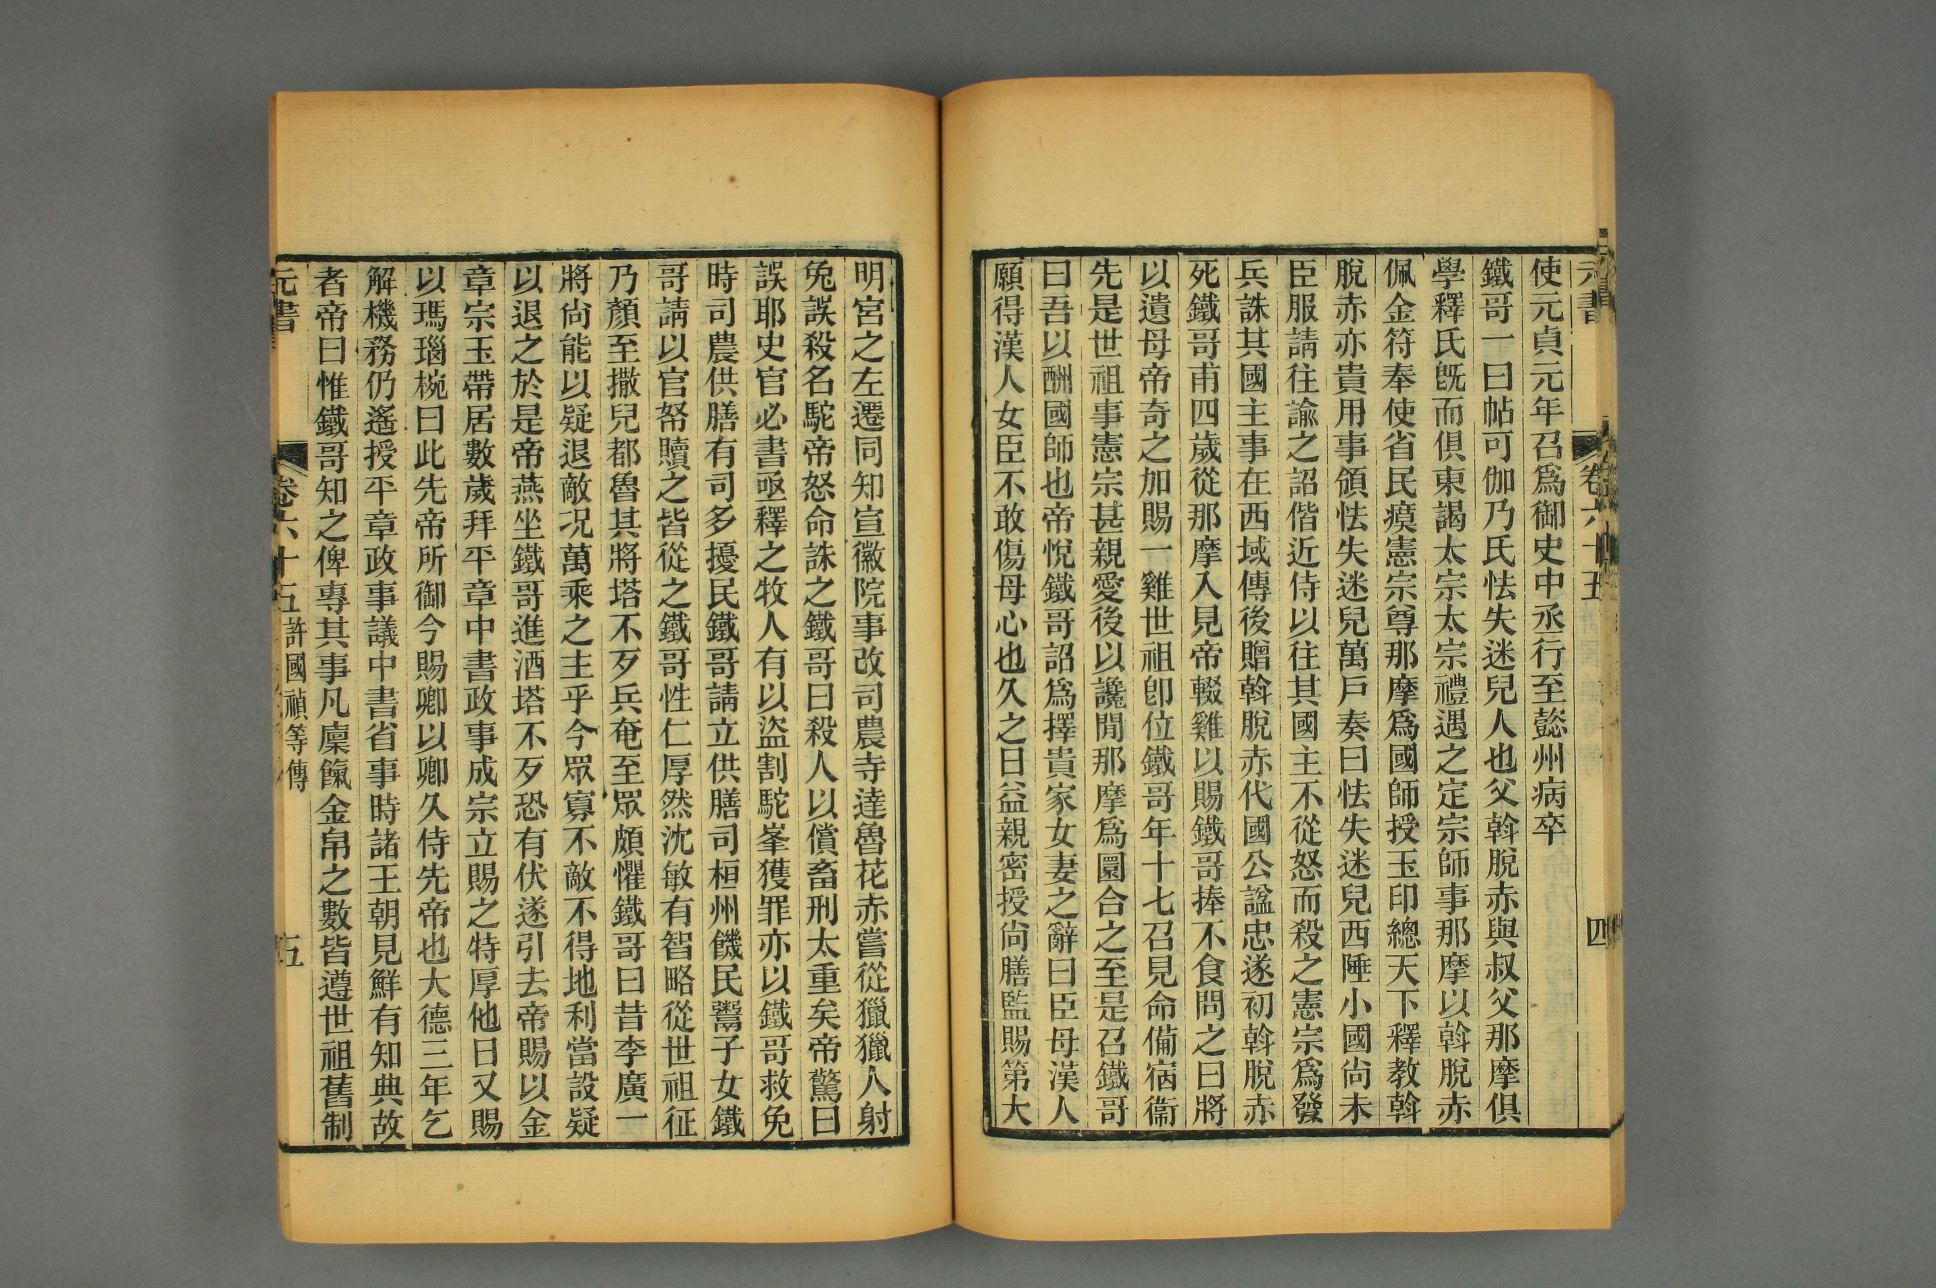 元書
卷六十五
四
使元貞元年召爲御史中丞行至懿州病卒
鐵哥一曰帖可伽乃氏怯失迷兒人也父斡脫赤與叔父那摩俱
學釋氏旣而俱東謁太宗太宗禮遇之定宗師事那摩以斡脫赤
佩金符奉使省民瘼憲宗尊那摩爲國師授玉印總天下釋教斡
脫赤亦貴用事領怯失迷兒萬戶奏曰怯失迷兒西陲小國尙未
臣服請往諭之詔偕近侍以往其國主不從怒而殺之憲宗爲發
兵誅其國主事在西域傳後贈斡脫赤代國公諡忠遂初斡脫赤
死鐵哥甫四歲從那摩入見帝輟雞以賜鐵哥捧不食問之曰將
以遺母帝奇之加賜一雞世祖卽位鐵哥年十七召見命備宿衞
先是世祖事憲宗甚親愛後以讒閒那摩爲圜合之至是召鐵哥
曰吾以酬國師也帝悅鐵哥詔爲擇貴家女妻之辭曰臣母漢人
願得漢人女臣不敢傷母心也久之日益親密授尙膳監賜第大
明宮之左遷同知宣徽院事改司農寺達魯花赤嘗從獵獵人射
兔誤殺名駝帝怒命誅之鐵哥曰殺人以償畜刑太重矣帝驚曰
誤耶史官必書亟釋之牧人有以盜割駝峯獲罪亦以鐵哥救免
時司農供膳有司多擾民鐵哥請立供膳司桓州饑民鬻子女鐵
哥請以官帑贖之皆從之鐵哥性仁厚然沈敏有智略從世祖征
乃顏至撒兒都魯其將塔不歹兵奄至眾頗懼鐵哥曰昔李廣一
將尙能以疑退敵况萬乘之主乎今眾寡不敵不得地利當設疑
以退之於是帝燕坐鐵哥進酒塔不歹恐有伏遂引去帝賜以金
章宗玉帶居數歲拜平章中書政事成宗立賜之特厚他日又賜
以瑪瑙椀曰此先帝所御今賜卿以卿久侍先帝也大德三年乞
解機務仍遙授平章政事議中書省事時諸王朝見鮮有知典故
者帝曰惟鐵哥知之俾專其事凡廩餼金帛之數皆遵世祖舊制
元書
卷六十五許國禎等傳
五